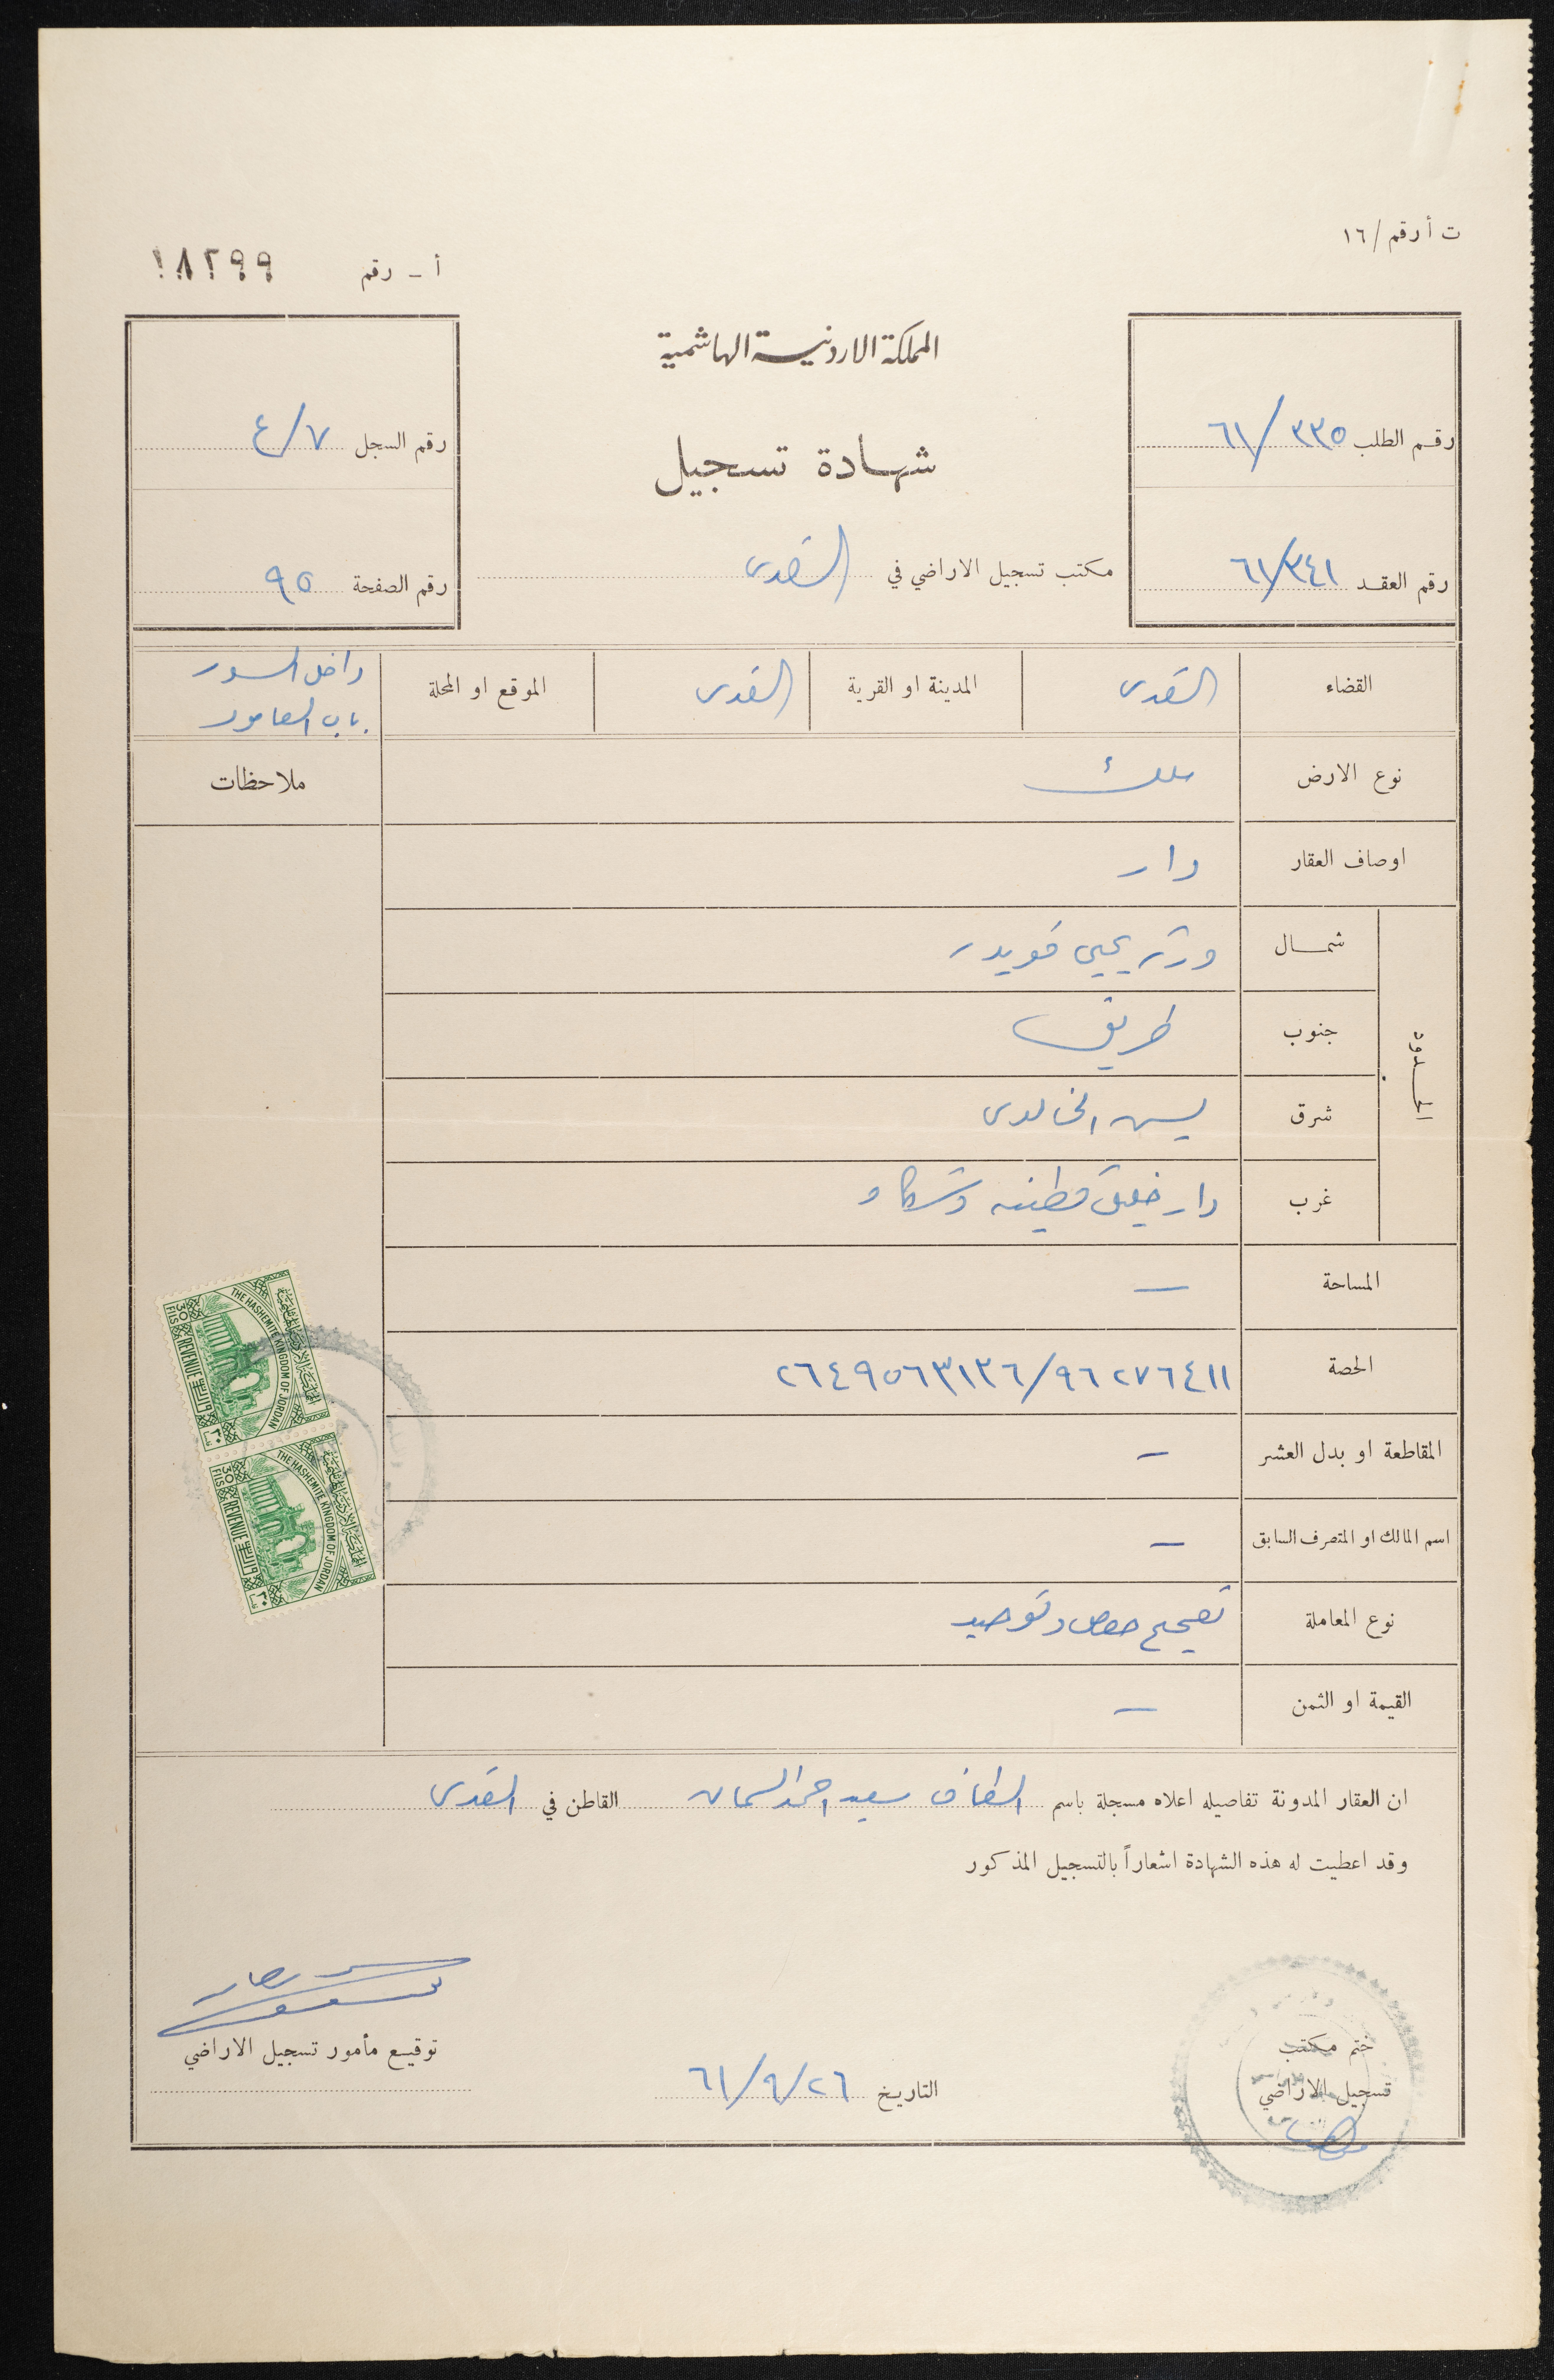 ت أ رقم / ١٦
أ - رقم ١٨٢٩٩
المملكة الاردنية الهاشمية
شهادة تسجيل
رقم الطلب ٣٣٥ / ٦١
رقم العقد ٣٤١ / ٦١
رقم السجل ٧ / ٤
رقم الصفحة ٩٥
مكتب تسجيل الاراضي في القدس
القضاء القدس المدينة او القرية القدس الموقع او المحلة داخل السور
باب العامود
نوع الارض ملك ملاحظات
اوصاف العقار دار
الحدود
شمال ورثة يحيى قويدر
جنوب طريق
شرق يسن الخالدي
غرب دار خليل قطينه وشركاه
المساحة —
الحصة ٩٦٢٧٦٤١١ / ٢٦٤٩٥٦٣١٣٦
المقاطعة او بدل العشر —
اسم المالك او المتصرف السابق —
نوع المعاملة تصحيح حصص وتوحيد
القيمة او الثمن —
THE HASHEMITE KINGDOM OF JORDAN
المملكة الاردنية الهاشمية
30 FILS REVENUE
THE HASHEMITE KINGDOM OF JORDAN
المملكة الاردنية الهاشمية
30 FILS REVENUE
ان العقار المدونة تفاصيله اعلاه مسجلة باسم سعيد احمد السمان القاطن في القدس
وقد اعطيت له هذه الشهادة اشعاراً بالتسجيل المذكور
ختم مكتب
تسجيل الاراضي
التاريخ ٢٦ / ٩ / ٦١
توقيع مأمور تسجيل الاراضي